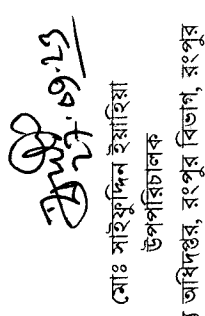 ২৭.০৭.২৩
মোঃ সাইফুদ্দিন ইয়াহিয়া
উপপরিচালক
অধিদপ্তর, রংপুর বিভাগ, রংপুর